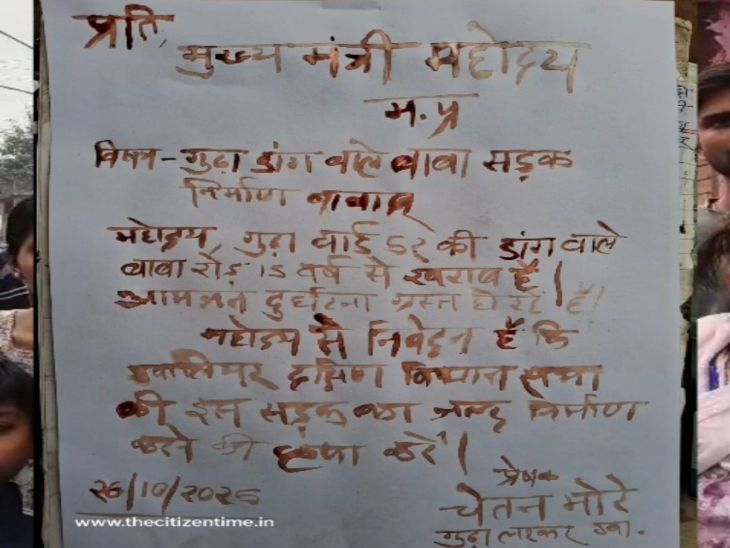 प्रति,
मुख्य मंत्री महोदय
म.प्र
विषय - गुढ़ा डांग वाले बाबा सड़क
निर्माण बाबात्
महोदय, गुढ़ा वार्ड 52 की डांग वाले
बाबा रोड़ 15 वर्ष से खराब है।
आमजन दुर्घटना ग्रस्त हो रहे हैं।
महोदय से निवेदन है कि
ग्वालियर दक्षिण विधान सभा
की इस सड़क का जल्द निर्माण
करने की कृपा करें।
प्रेषक
26/10/2025
चेतन मोरे
गुढ़ा लश्कर ग्वा.
www.thecitizentime.in